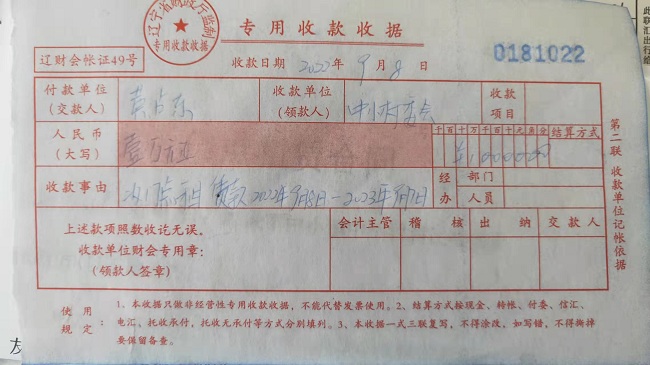 辽宁省财政厅监制
专用收款收据
专用收款收据
辽财会帐证49号
收款日期 2022年9月8日
0181022
付款单位
(交款人)
收款单位
(领款人)
收款
项目
人民币
(大写)
壹万元正
千百十万千百十元角分
结算方式
¥1000000
收款事由
贷款2022年9月8日—2023年9月7日
经办
部门
人员
上述款项照数收讫无误。
收款单位财会专用章:
(领款人签章)
会计主管
稽核
出纳
交款人
第二联 收款单位记帐依据
使用规定:
1、本收据只做非经营性专用收款收据,不能代替发票使用。2、结算方式按现金、转帐、付委、信汇、
电汇、托收承付,托收无承付等方式分别填列。3、本收据一式三联复写,不得涂改,如写错,不得撕掉
要保留备查。